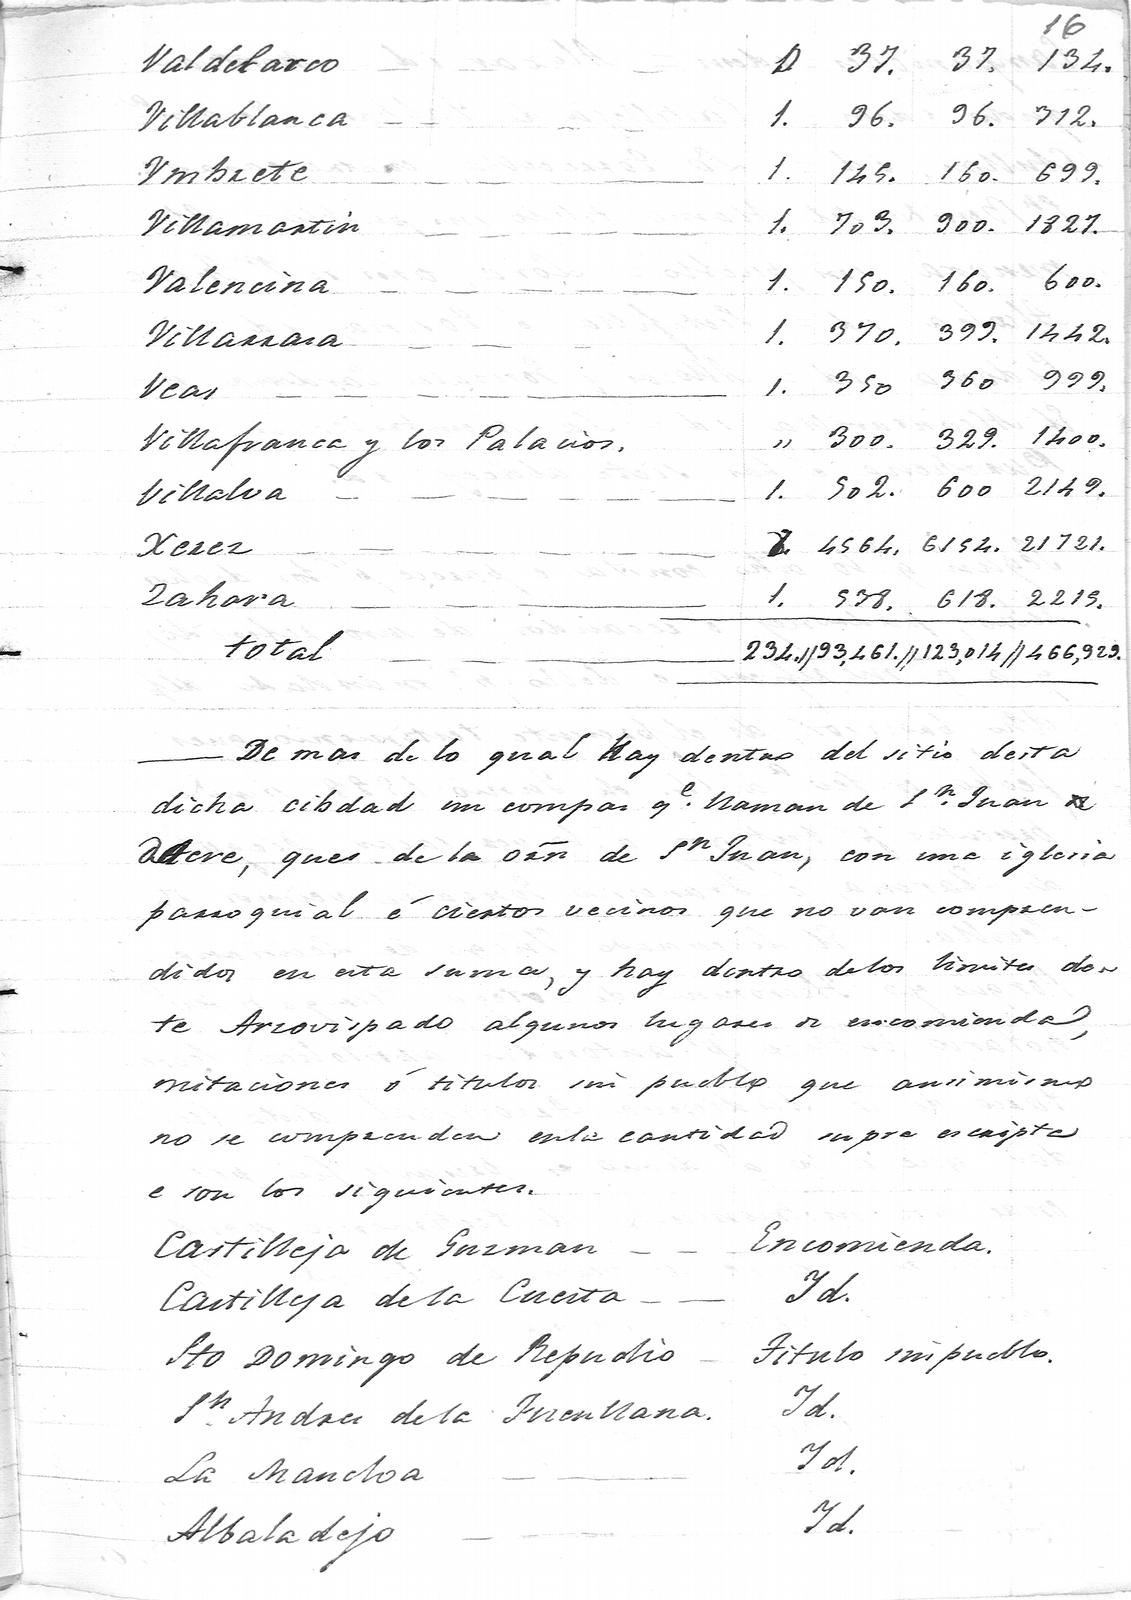 16
Valdelarco 1 37. 37. 134.
Villablanca 1. 96. 96. 312.
Vmbrete 1. 145. 160. 699.
Villamartin 1. 703. 900. 1827.
Valencina 1. 150. 160. 600.
Villarrasa 1. 370. 399. 1442.
Veas 1. 350 360 999.
Villafranca y los Palacios. " 300. 329. 1400.
Villalva 1. 502. 600 2149.
Xerez 4564. 6154. 21721.
Zahara 1. 538. 618. 2215.
total 234.//93,461.//123,014//466,929.
De mas de lo qual Hay dentro del sitio desta
dicha cibdad un compas qe. llaman de Sn. Juan
Dacre, ques de la orñ de Sn Juan, con una iglesia
parroquial é ciertos vecinos que no van compren-
didos en esta suma, y hay dentro delos limites des
te Arzovispado algunos lugares de encomienda,
mitaciones ó titulos sin pueblo que ansimismo
no se comprenden enla cantidad supra escripta
e son los siguientes.
Castilleja de Guzman Encomienda.
Castilleja de la Cuesta Id.
Sto Domingo de Repudio Titulo sin pueblo.
Sn. Andres de la Fuenllana. Id.
La Manchoa Id.
Albaladejo Id.